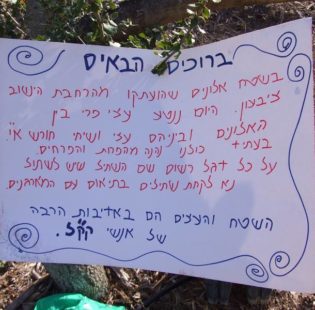 ברוכים הבאים
בשטח אלונים שהועתקו מהרחבת הישוב
ציבעון. היום נטע עצי פרי בין
האלונים וביניהם עצי ושיחי חורש א"י.
בעתיד כולנו נהנה מהפרות והפרחים.
על כל דגל רשום שם השתיל שיש לשתול
נא לקחת שתילים בתיאום עם המארגנים.
השטח והעצים הם באדיבות הרבה
של אנשי קק"ל.